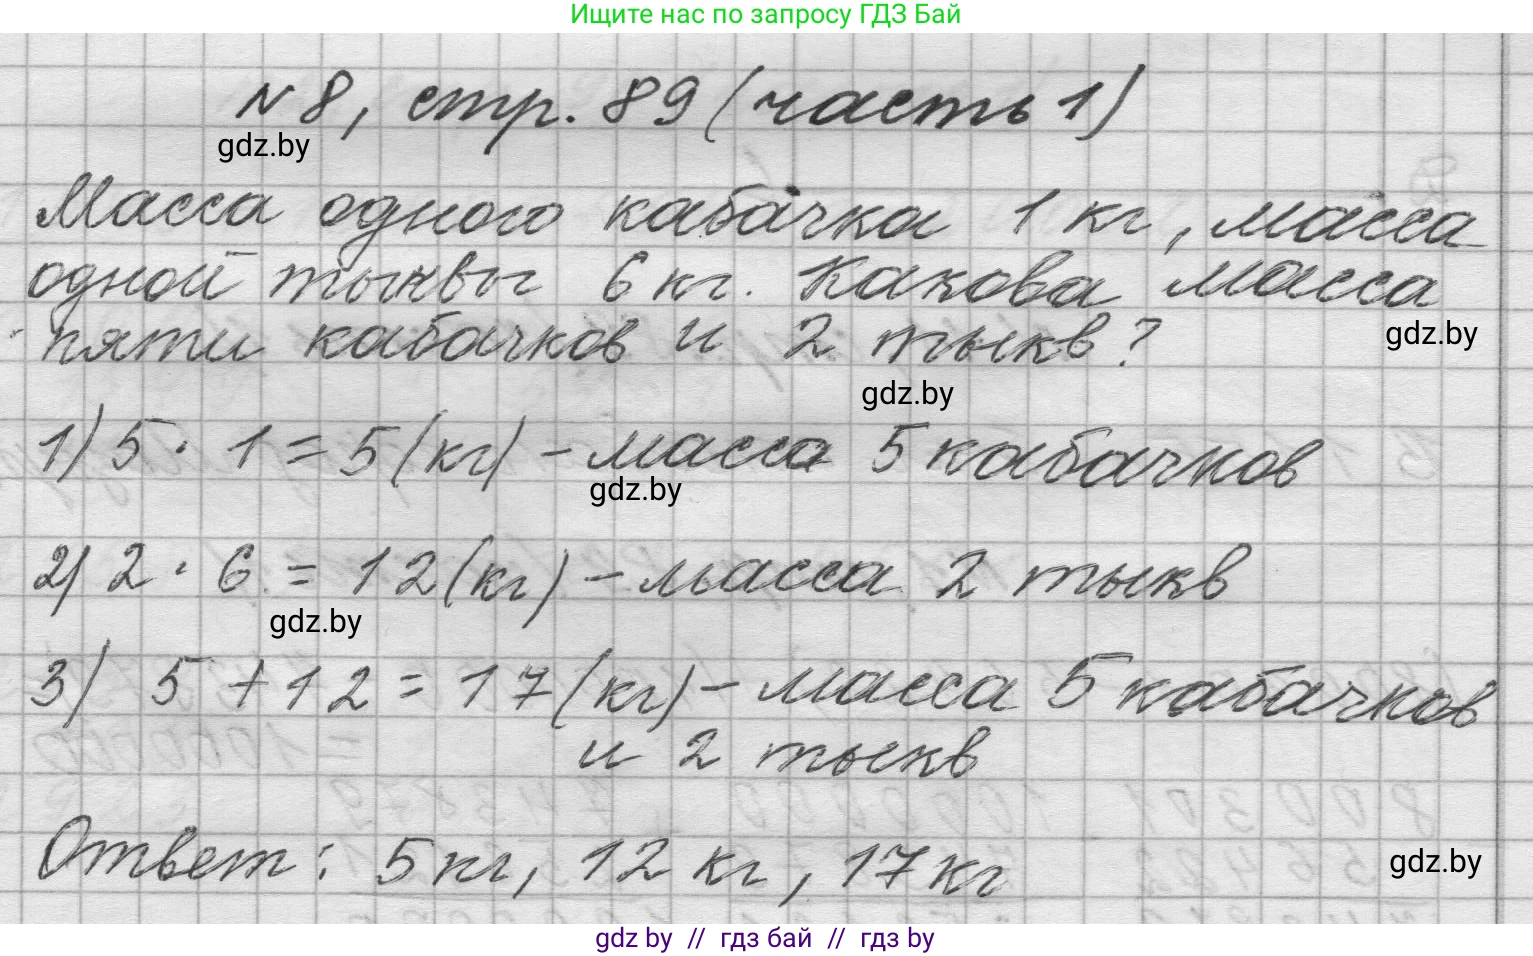 Ищите нас по запросу ГДЗ Бай
№ 8, стр. 89 (часть 1)
gdz.by
Масса одного кабачка 1 кг, масса
одной тыквы 6 кг. Какова масса
пяти кабачков и 2 тыкв?
gdz.by
gdz.by
1) 5 · 1 = 5 (кг) - масса 5 кабачков
gdz.by
2) 2 · 6 = 12 (кг) - масса 2 тыкв
gdz.by
3) 5 + 12 = 17 (кг) - масса 5 кабачков
и 2 тыкв
Ответ: 5 кг, 12 кг, 17 кг
gdz.by
gdz by // гдз бай // гдз by